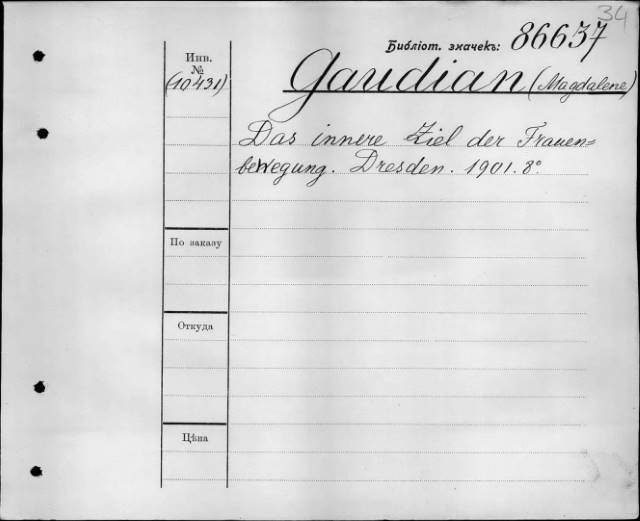 34
Библіот. значекъ: 86637
Инв.
№
(10431)
Gaudian (Magdalene)
Das innere Ziel der Frauen=
bewegung. Dresden. 1901. 8°.
По заказу
Откуда
Цѣна